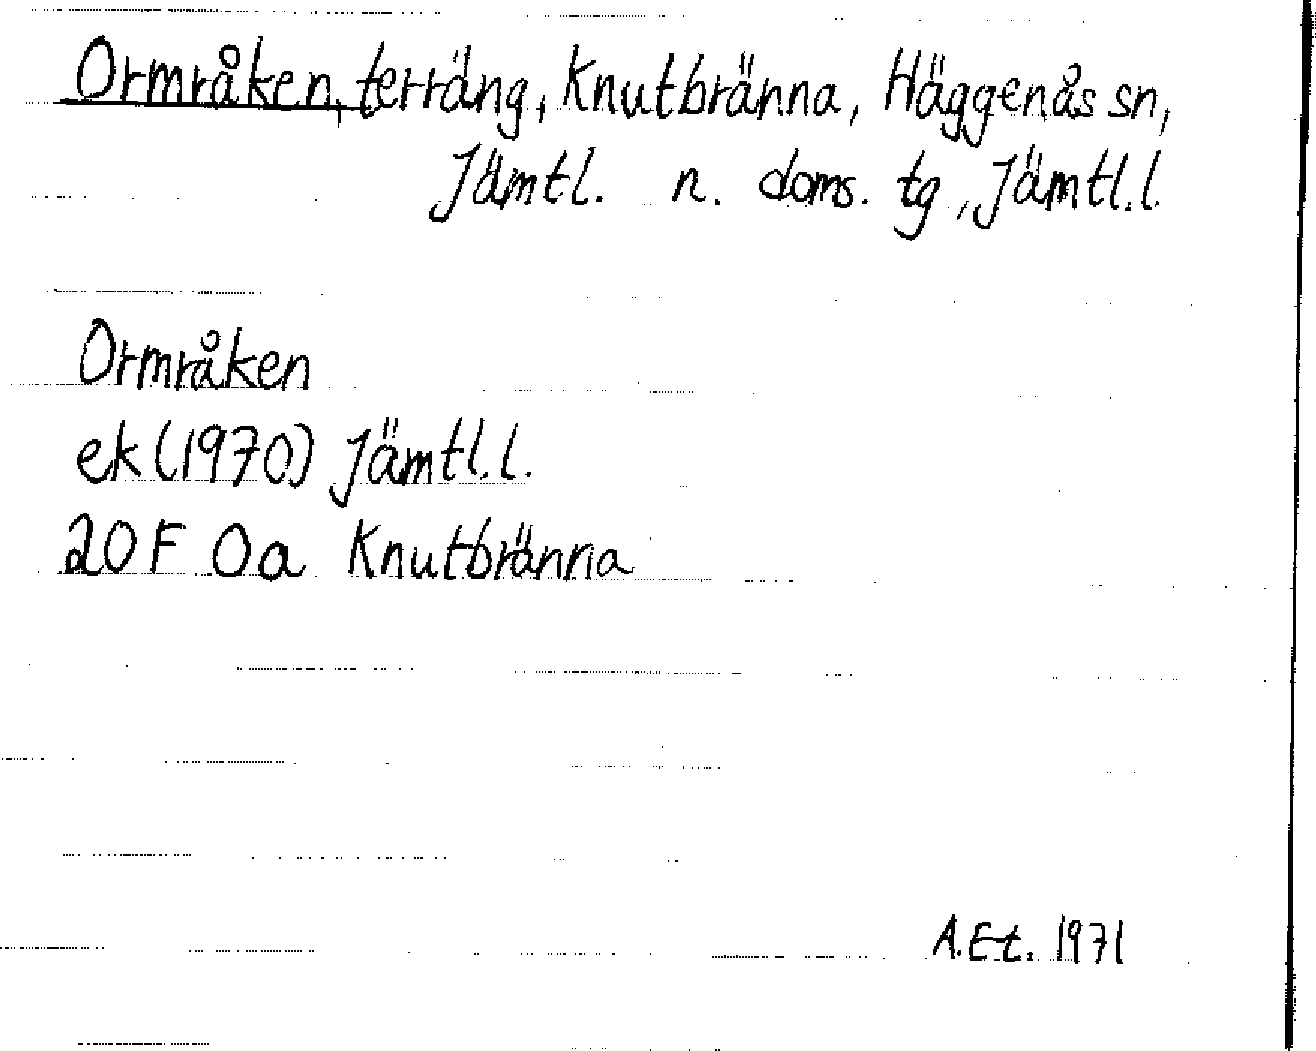 Ormråken, terräng, Knutbränna, Häggenås sn,
Jämtl. n. doms. tg, Jämtl.l.
Ormråken
ek (1970) Jämtl.l.
20F 0a Knutbränna
A.Et. 1971